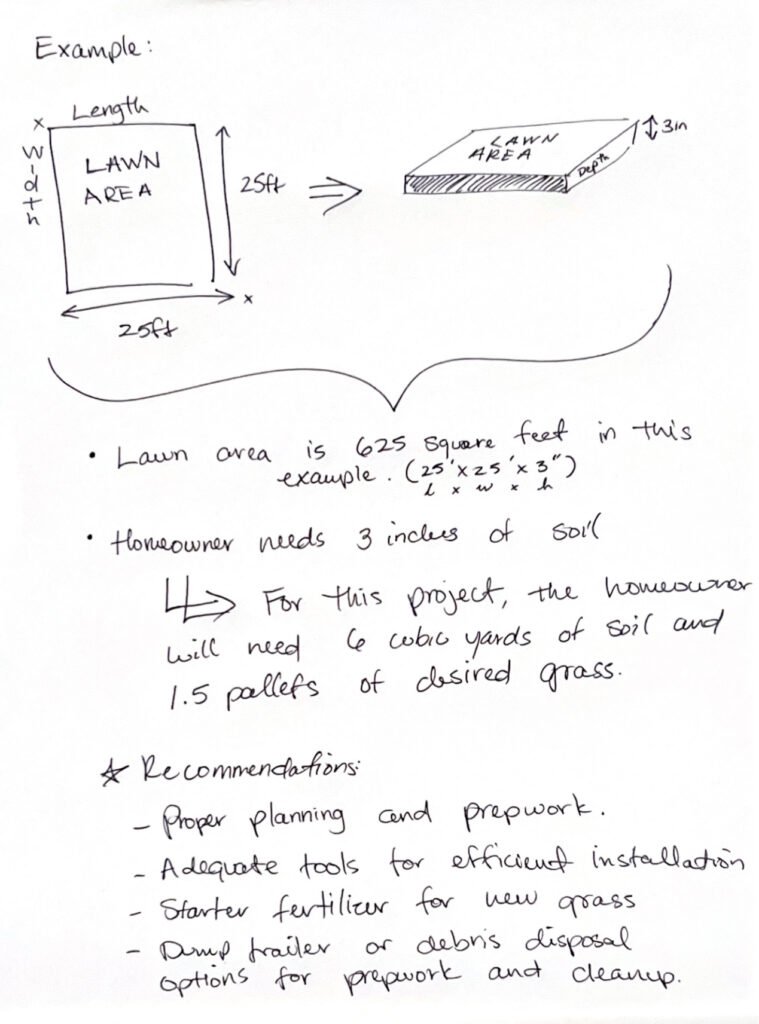 Example:
x Length
Width
LAWN
AREA
25ft
25ft
x
LAWN
AREA
Depth
3in
• Lawn area is 625 square feet in this
example. (25'x25'x3")
l x w x h
• Homeowner needs 3 inches of soil
For this project, the homeowner
will need 6 cubic yards of soil and
1.5 pallets of desired grass.
☆ Recommendations:
- Proper planning and prepwork.
- Adequate tools for efficient installation
- Starter fertilizer for new grass
- Dump trailer or debris disposal
options for prepwork and cleanup.